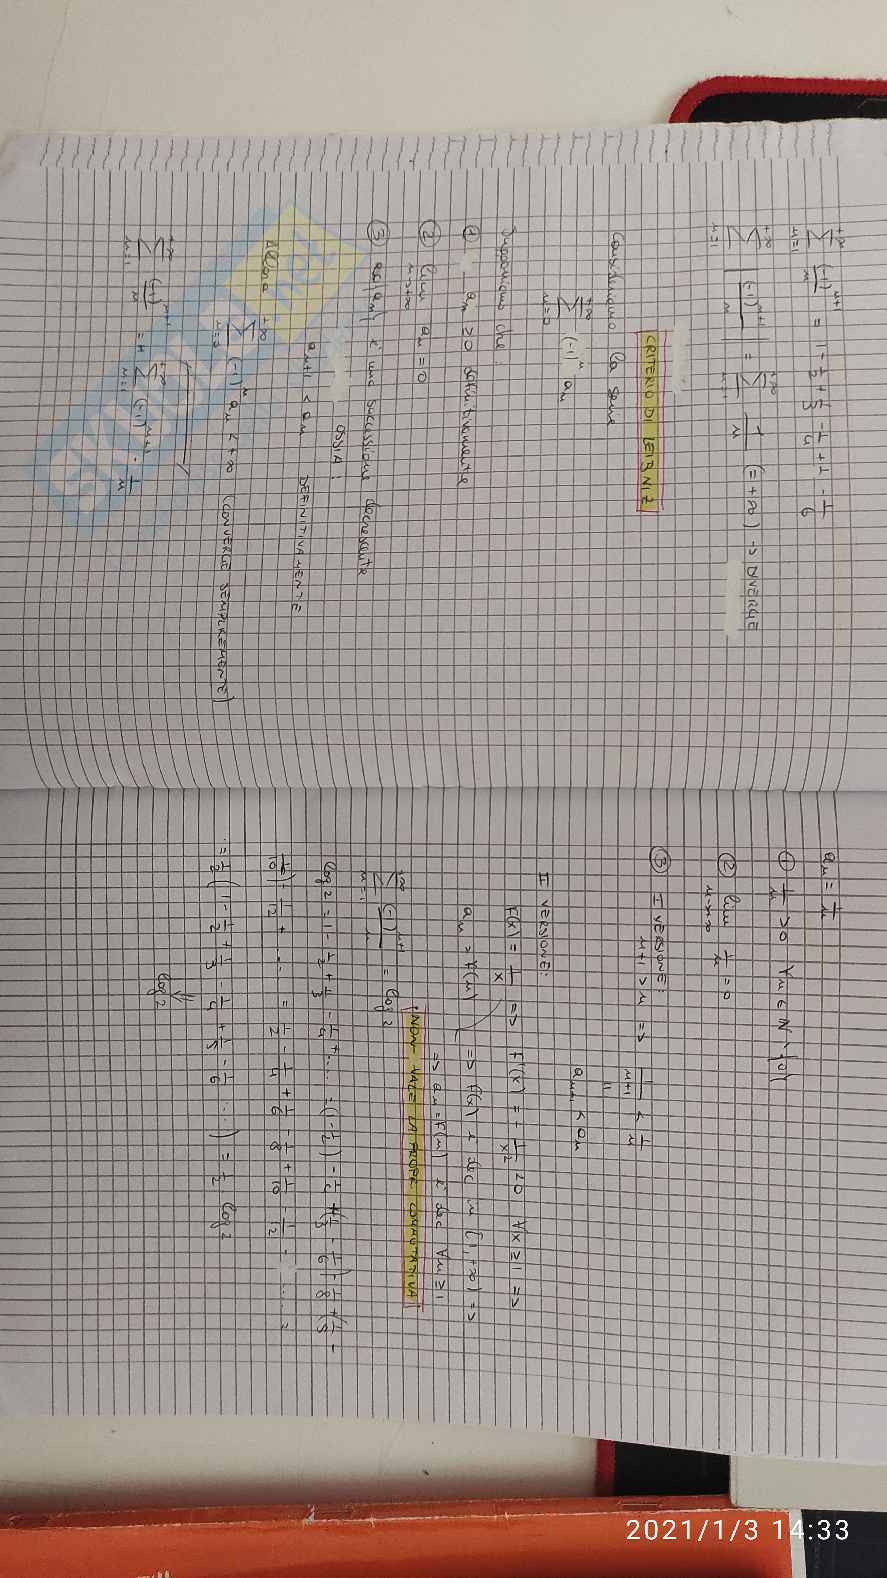 +∞ Σ n=1 (-1)^{n+1}/n = 1 - 1/2 + 1/3 - 1/4 + 1/5 - 1/6
+∞ Σ n=1 |(-1)^{n+1}/n| = +∞ Σ n=1 1/n (= +∞) → DIVERGE
CRITERIO DI LEIBNIZ
Consideriamo la serie
+∞ Σ n=0 (-1)^n a_n
Supponiamo che:
① a_n > 0 definitivamente
② lim n→+∞ a_n = 0
③ {a_n} è una successione decrescente
OSSIA:
a_{n+1} < a_n DEFINITIVAMENTE
Allora +∞ Σ n=0 (-1)^n a_n < +∞ (CONVERGE SEMPLICEMENTE)
+∞ Σ n=1 (-1)^{n+1}/n = +∞ Σ n=1 (-1)^{n+1} · 1/n
a_n = 1/n
① 1/n > 0 ∀n ∈ N \ {0}
② lim n→∞ 1/n = 0
③ I VERSIONE:
n+1 > n => 1/(n+1) < 1/n
a_{n+1} < a_n
II VERSIONE:
f(x) = 1/x => f'(x) = - 1/x² < 0 ∀x ≥ 1 =>
a_n = f(n) => f(x) è dec in [1, +∞) =>
=> a_n = f(n) è dec ∀n ≥ 1
NON VALE LA PROPR COMMUTATIVA
+∞ Σ n=1 (-1)^{n+1}/n = log 2
log 2 = 1 - 1/2 + 1/3 - 1/4 + .... = (1 - 1/2) - 1/4 + (1/3 - 1/6) - 1/8 + (1/5 -
1/10) - 1/12 + .... = 1/2 - 1/4 + 1/6 - 1/8 + 1/10 - 1/12 - .... =
= 1/2 (1 - 1/2 + 1/3 - 1/4 + 1/5 - 1/6 ....) = 1/2 log 2
log 2
SKUOLA.net
2021/1/3 14:33